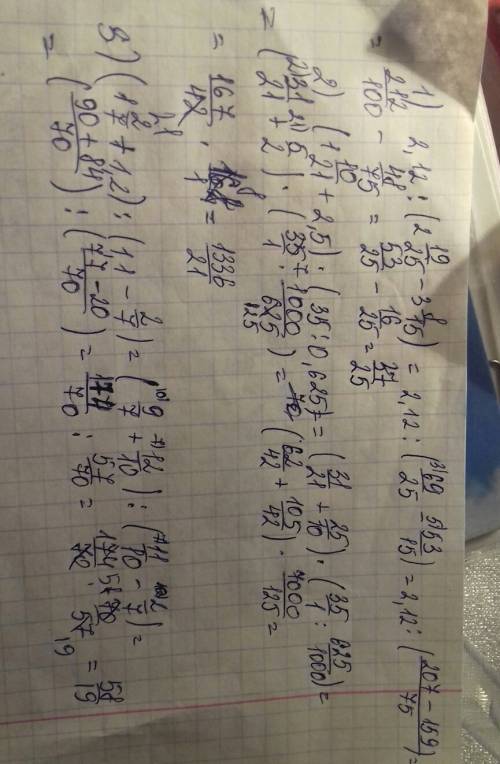 1) 2,12 : (2 19/25 - 3 8/15) = 2,12 : (69/25 - 53/15) = 2,12 : (207 - 159/75) =
= 212/100 - 48/75 = 53/25 - 16/25 = 37/25
2) (1 10/21 + 2,5) · (35 : 0,625) = (31/21 + 25/10) · (35/1 : 625/1000) =
= (31/21 + 5/2) · (35/1 · 1000/625) = (62/42 + 105/42) · 7000/125 =
= 167/42 · = 1336/21
3) (1 2/7 + 1,2) : (1,1 - 2/7) = (9/7 + 12/10) : (11/10 - 2/7) =
= (90 + 84/70) : (77 - 20/70) = 174/70 : 57/70 = = 58/19